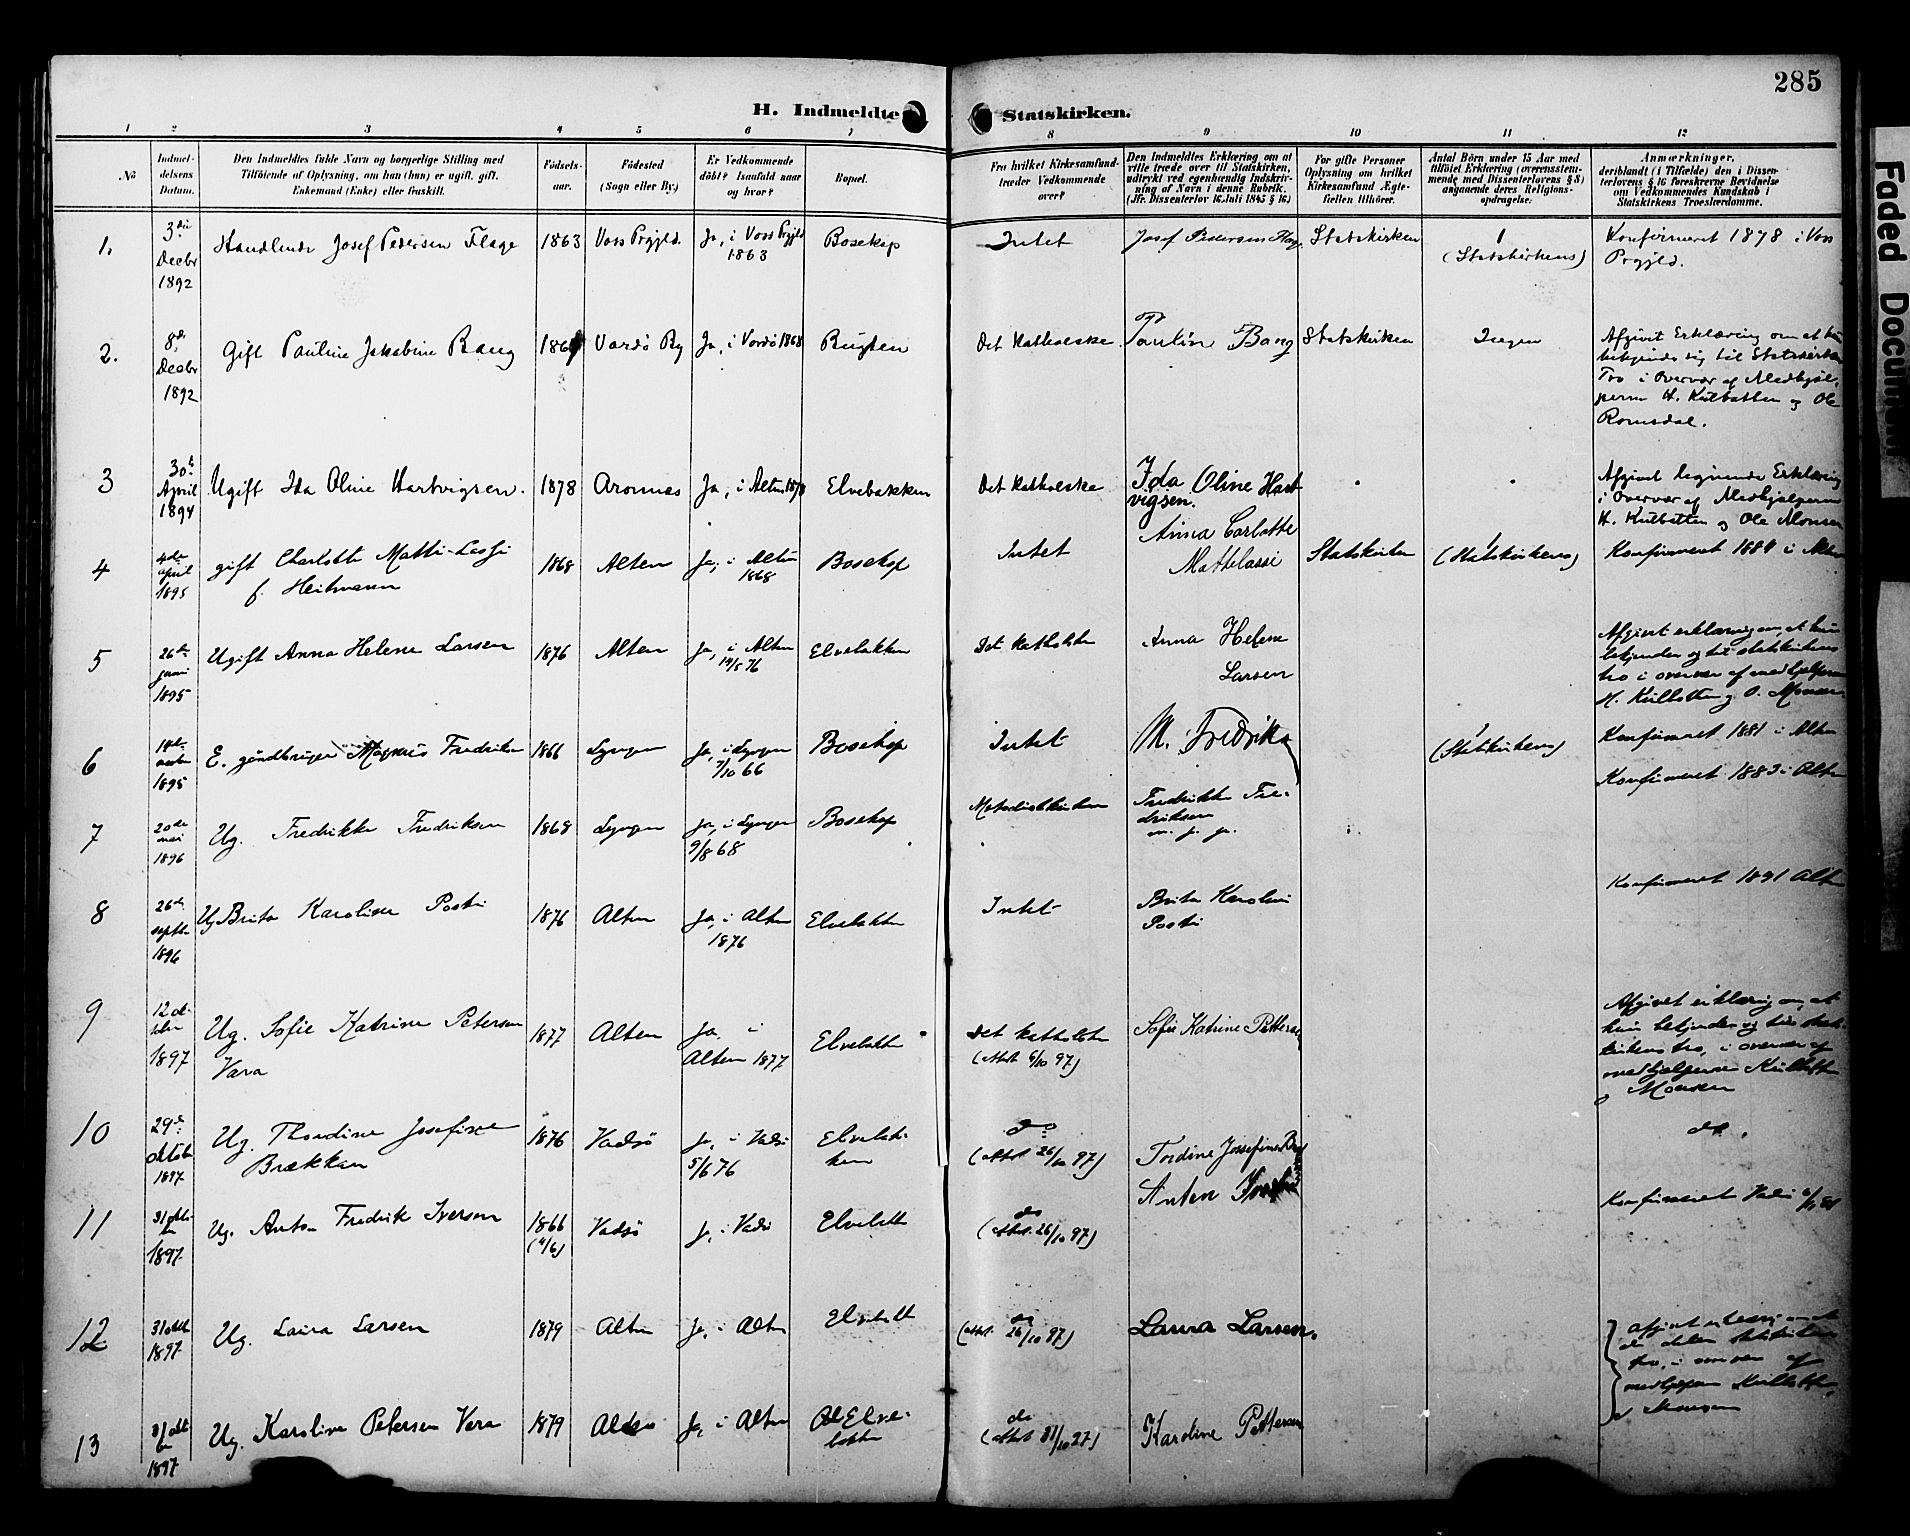 285
H. Indmeldte
Statskirken.
1 2 3 4 5 6 7 8 9 10 11 12
No
Indmel-
delsens
Datum.
Den Indmeldtes fulde Navn og borgerlige Stilling med
Tilföiende af Oplysning, om han (hun) er ugift, gift,
Enkemand (Enke) eller fraskilt.
Födsels-
aar.
Födested
(Sogn eller By.)
Er Vedkommende
döbt? Isaafald naar
og hvor?
Bopæl.
Fra hvilket Kirkesamfund
træder Vedkommende
over?
Den Indmeldtes Erklæring om at
ville træde over til Statskirken,
udtrykt ved egenhændig Indskriv-
ning af Navn i denne Rubrik.
(Jfr. Dissenterlov 16 Juli 1845 § 16)
For gifte Personer
Oplysning om hvilket
Kirkesamfund Ægte-
fællen tilhörer.
Antal Börn under 15 Aar med
tilföiet Erklæring (overensstem-
mende med Dissenterlovens § 8)
angaaende deres Religions-
opdragelse.
Anmærkninger,
deriblandt (i Tilfælde) den i Dissen-
terlovens § 16 foreskrevne Bevidnelse
om Vedkommendes Kundskab i
Statskirkens Troeslærdomme.
1.
3die
Decbr
1892
Handlende Josef Pedersen Flage
1863
Voss Prgjld.
Ja, i Voss Prgjld
1863
Bosekop
Intet
Josef Pedersen Flage
Statskirken
1
(Statskirkens)
Konfirmeret 1878 i Voss
Prgjld.
2.
8de
Decbr
1892
Gift Pauline Jakobine Bang
Vardö By
Ja, i Vardö 1868
Bugten
Det Katholske
Paulin Bang
Statskirken
Ingen
Afgivet Erklæring om at hun
bekjender sig til Statskirkens
Tro i Overvær af Medhjæl-
perne H. Kulbotten og Ole
Romsdal.
3
30te
April
1894
Ugift Ida Oline Hartvigsen.
1878
Aronnæs
Ja, i Alten 1878
Elvebakken
Det Katholske
Ida Oline Hart
vigsen.
Afgivet lignende Erklæring
i Overvær af Medhjælperne
H. Kulbotten og Ole Monsen
4
4de
april
1895
gift Charlotte Matti-Lassi
f. Heitmann
1868
Alten
Ja, i Alten
1868
Bosekop
Intet
Anna Carlotte
Mattelassi
Statskirken
1
(Statskirkens)
Konfirmeret 1884 i Alten
5
26de
juni
1895
Ugift Anna Helene Larsen
1876
Alten
Ja, i Alten
14/5 76
Elvebakken
Det katholske
Anna Helene
Larsen
Afgivet erklæring om, at hun
bekjender sig til statskirkens
tro i overvær af medhjælperne
H. Kulbotten og O. Monsen.
6
1895
E. gaardbruger Magnus Fredriksen
1866
Lyngen
Ja, i Lyngen
7/10 66
Bosekop
Intet
M. Fredriks
1
(Statskirkens)
Konfirmeret 1881 i Alten
7
20de
mai
1896
Ug. Fredrikke Fredriksen
1868
Lyngen
Ja, i Lyngen
9/8 68
Bosekop
Metodistkirken
Fredrikke Fre-
driksen
m. f. p.
Konfirmeret 1883 i Alten
8
26de
septbr
1896
Ug Brita Karoline Posti
1876
Alten
Ja, i Alten
1876
Elvebakken
Intet
Brita Karolini
Posti
Konfirmeret 1891 Alten
9
12
1897
Ug. Sofie Katrine Petersen
Vara
1877
Alten
Ja, i
Alten 1877
Elvebakken
Det katholske
(attest 6/10 97)
Sofie Katrine Pettersen
Afgivet erklæring om, at
hun bekjender sig til stats-
kirkens tro, i overvær af
medhjælperne Kulbotten
og Monsen
10
29de
oktober
1897
Ug. Thordine Josefine
Brækken
1876
Vadsö
Ja, i Vadsö
5/6 76
Elvebak-
ken
do
(attest 26/10 97)
Tordine Jossefine
do.
11
31
1897
Ug. Anton Fredrik Iversen
1866
(4/6)
Vadsö
Ja, i Vadsö
Elvebakken
do
(attest 26/10 97)
Anton
Konfirmeret Vadsö
12
31 oktb
1897
Ug. Laura Larsen
1879
Alten
Ja, i Alten
Elvebakken
do
(attest 26/10 97)
Laura Larsen.
Afgivet erklæring om at
de deler statskirkens
tro, i overvær af
medhjælperne Kulbotten
og Monsen
13
31 oktb
1897
Ug. Karoline Petersen Vara
1879
Alten
Ja, i Alten
Elve-
bakken
do
(attest 31/10 97)
Karoline Pettersen
Faded Document